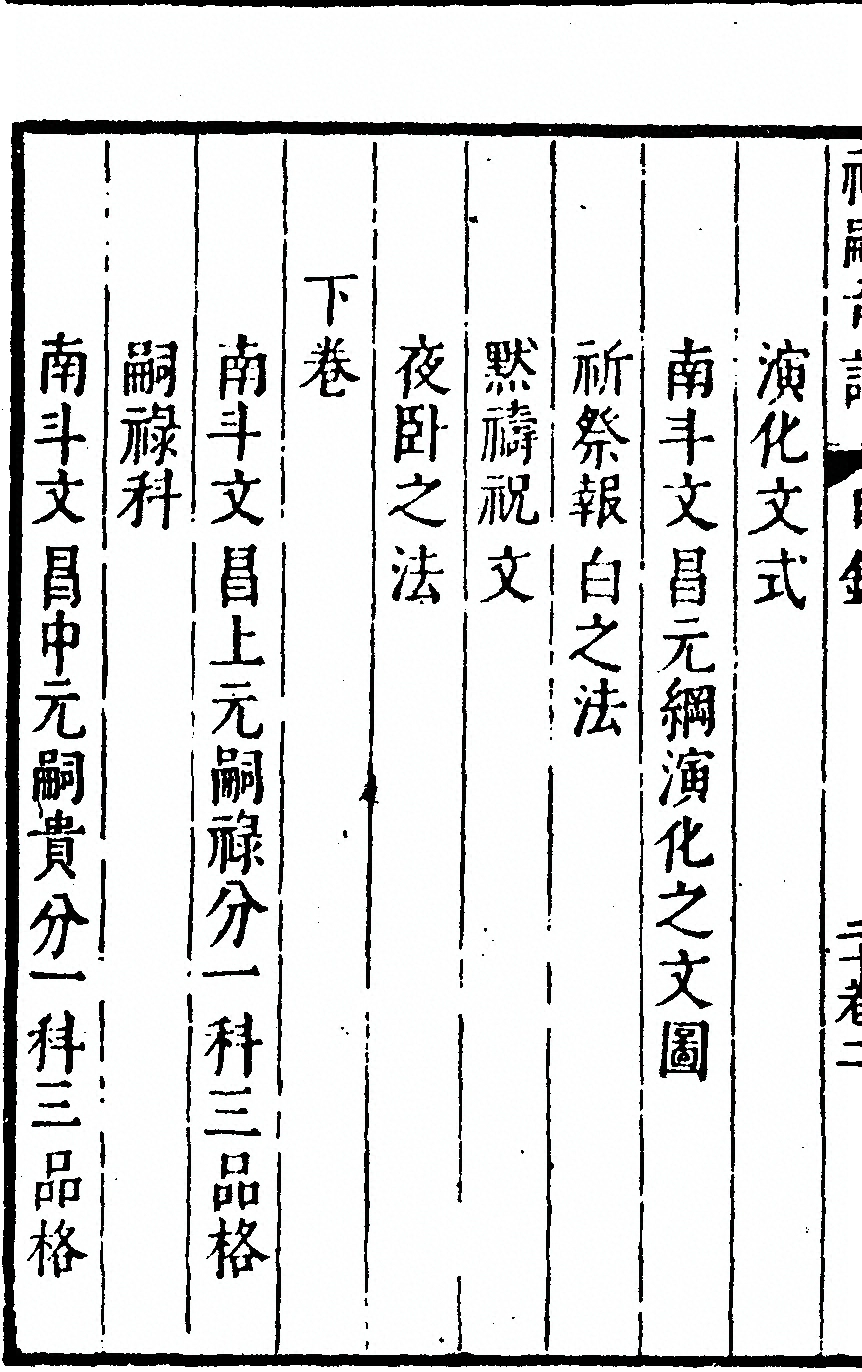 演化文式
南斗文昌元綱演化之文圖
祈祭報白之法
黙禱祝文
夜卧之法
下卷
南斗文昌上元嗣祿分一科三品格
嗣祿科
南斗文昌中元嗣貴分一科三品格